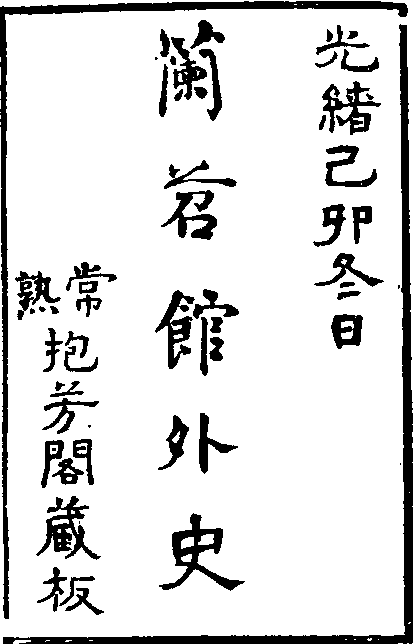 光緒己卯冬日
蘭苕館外史
常熟抱芳閣藏板